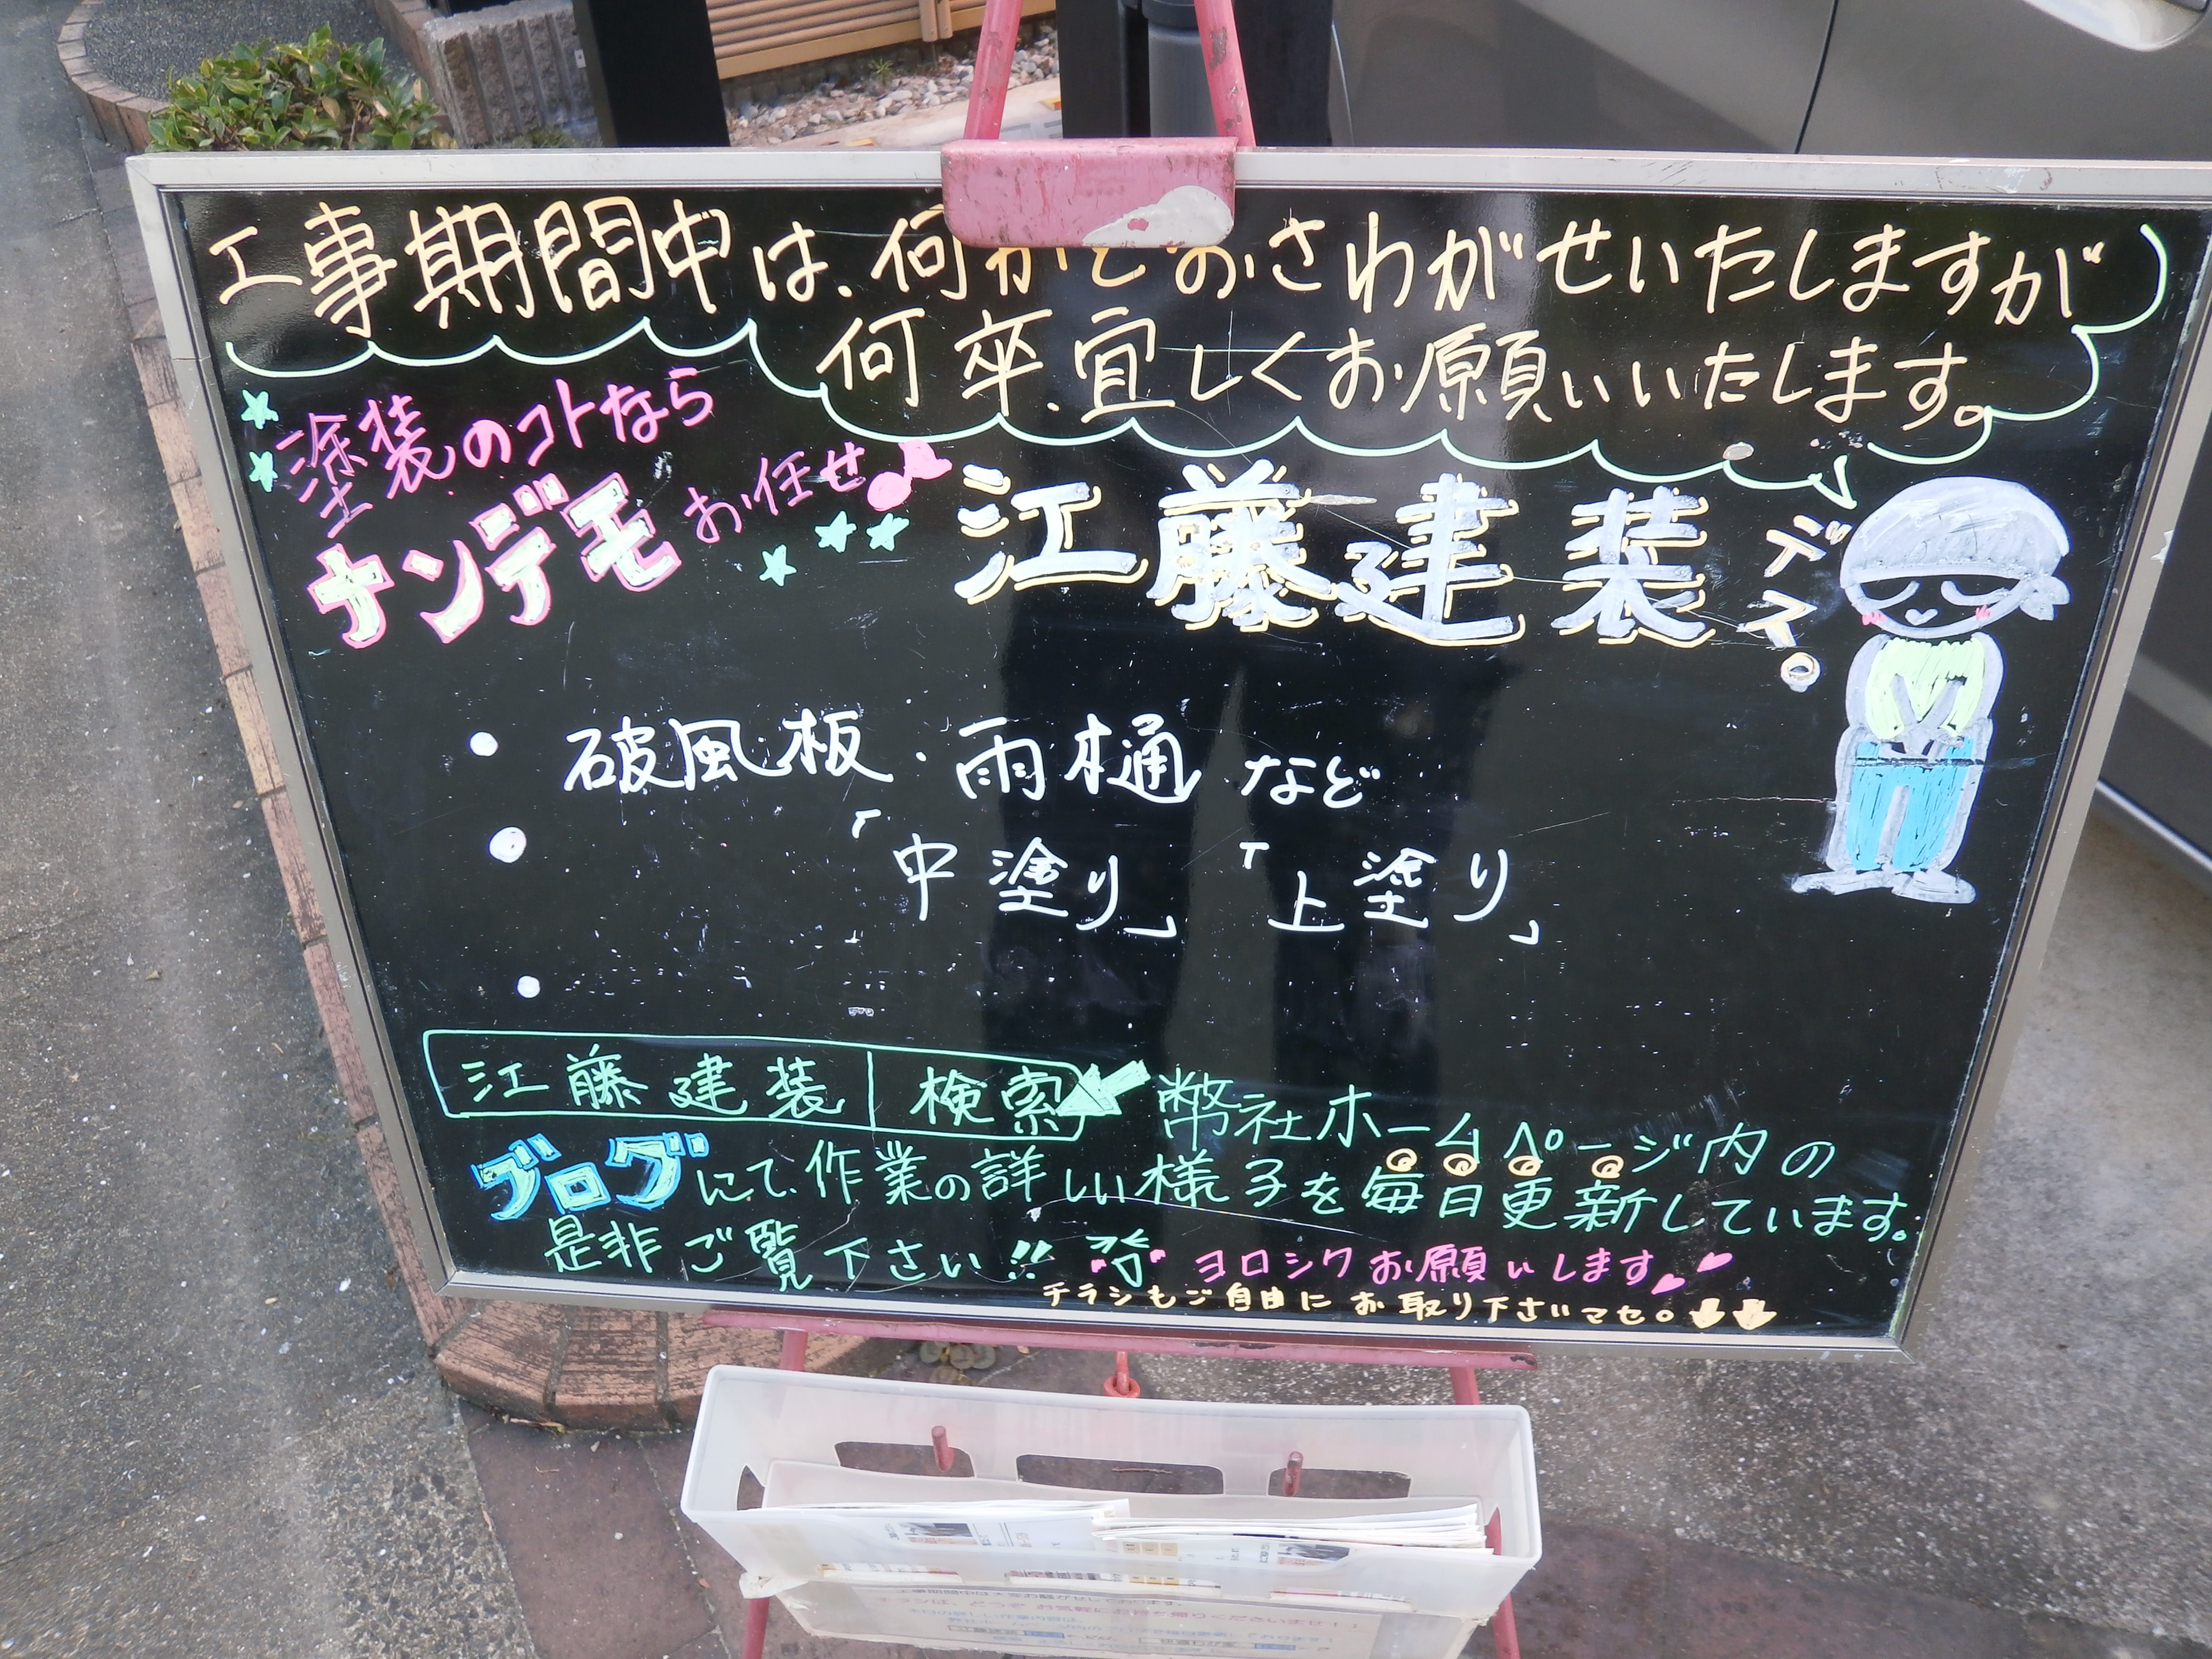 工事期間中は、何かとおさわがせいたしますが
何卒、宜しくお願いいたします。
塗装のコトなら
ナンデモお任せ
江藤建装デス。
・破風板・雨樋など
・「中塗り」「上塗り」
・
江藤建装 検索 弊社ホームページ内の
ブログにて、作業の詳しい様子を毎日更新しています。
是非ご覧下さい!! ヨロシクお願いします
チラシもご自由にお取り下さいマセ。